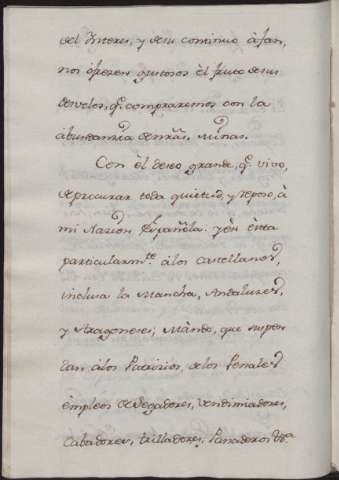 del Ynteres, y desu continuo àfan,
nos ofrecen gustosos èl fruto desus
desvelos, q.e compraremos con la
àbundanzia de nrãs. Minas.
Con èl deseo grande, q.e vivo,
de procurar toda quietud, y reposo, à
mi Nazion Española. yèn èsta
particularm.te àlos Castellanos,
inclusa la Mancha, Andaluzes,
y Aragoneses; Mando, que suspen
dan àlos Patrizios, delos Penales
èmpleos de Segadores, Vendimiadores,
Cabadores, trilladores, Panaderos &.a